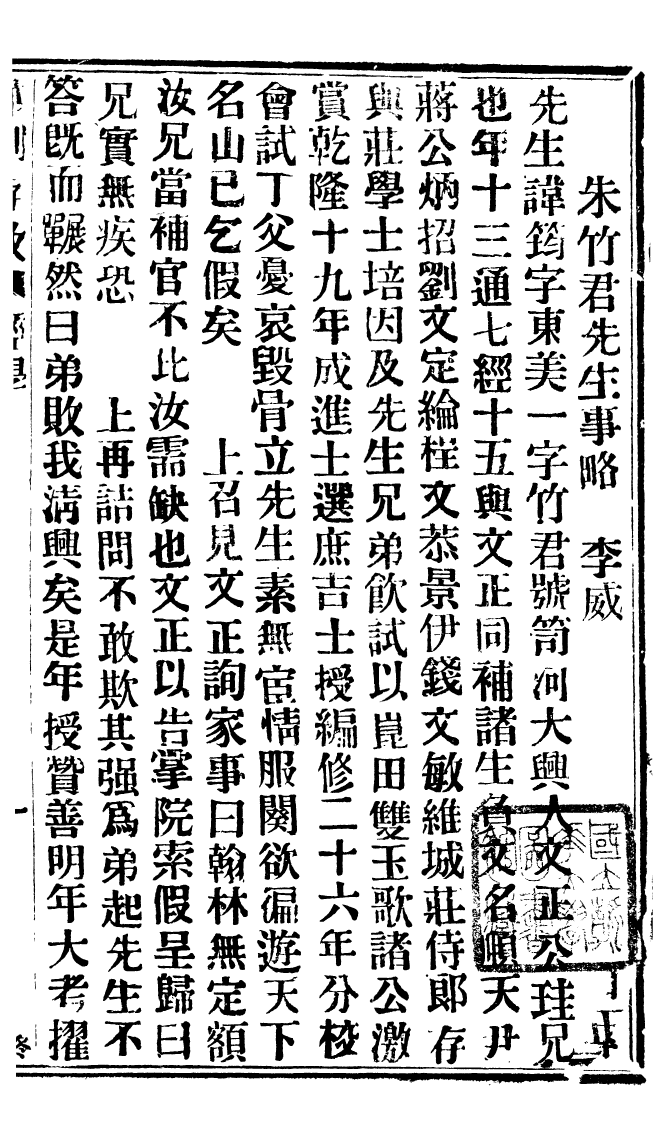 朱竹君先生事略　李威
先生諱筠字東美一字竹君號笥河大興人文正公珪兄
也年十三通七經十五與文正同補諸生負文名順天尹
蔣公炳招劉文定綸程文恭景伊錢文敏維城莊侍郎存
與莊學士培因及先生兄弟飲試以崑田雙玉歌諸公激
賞乾隆十九年成進士選庶吉士授編修二十六年分校
會試丁父憂哀毀骨立先生素無宦情服闋欲徧遊天下
名山已乞假矣　　上召見文正詢家事曰翰林無定額
汝兄當補官不比汝需缺也文正以告掌院索假呈歸曰
兄實無疾恐　　上再詰問不敢欺其强爲弟起先生不
答既而囅然曰弟敗我淸興矣是年授贊善明年大考擢